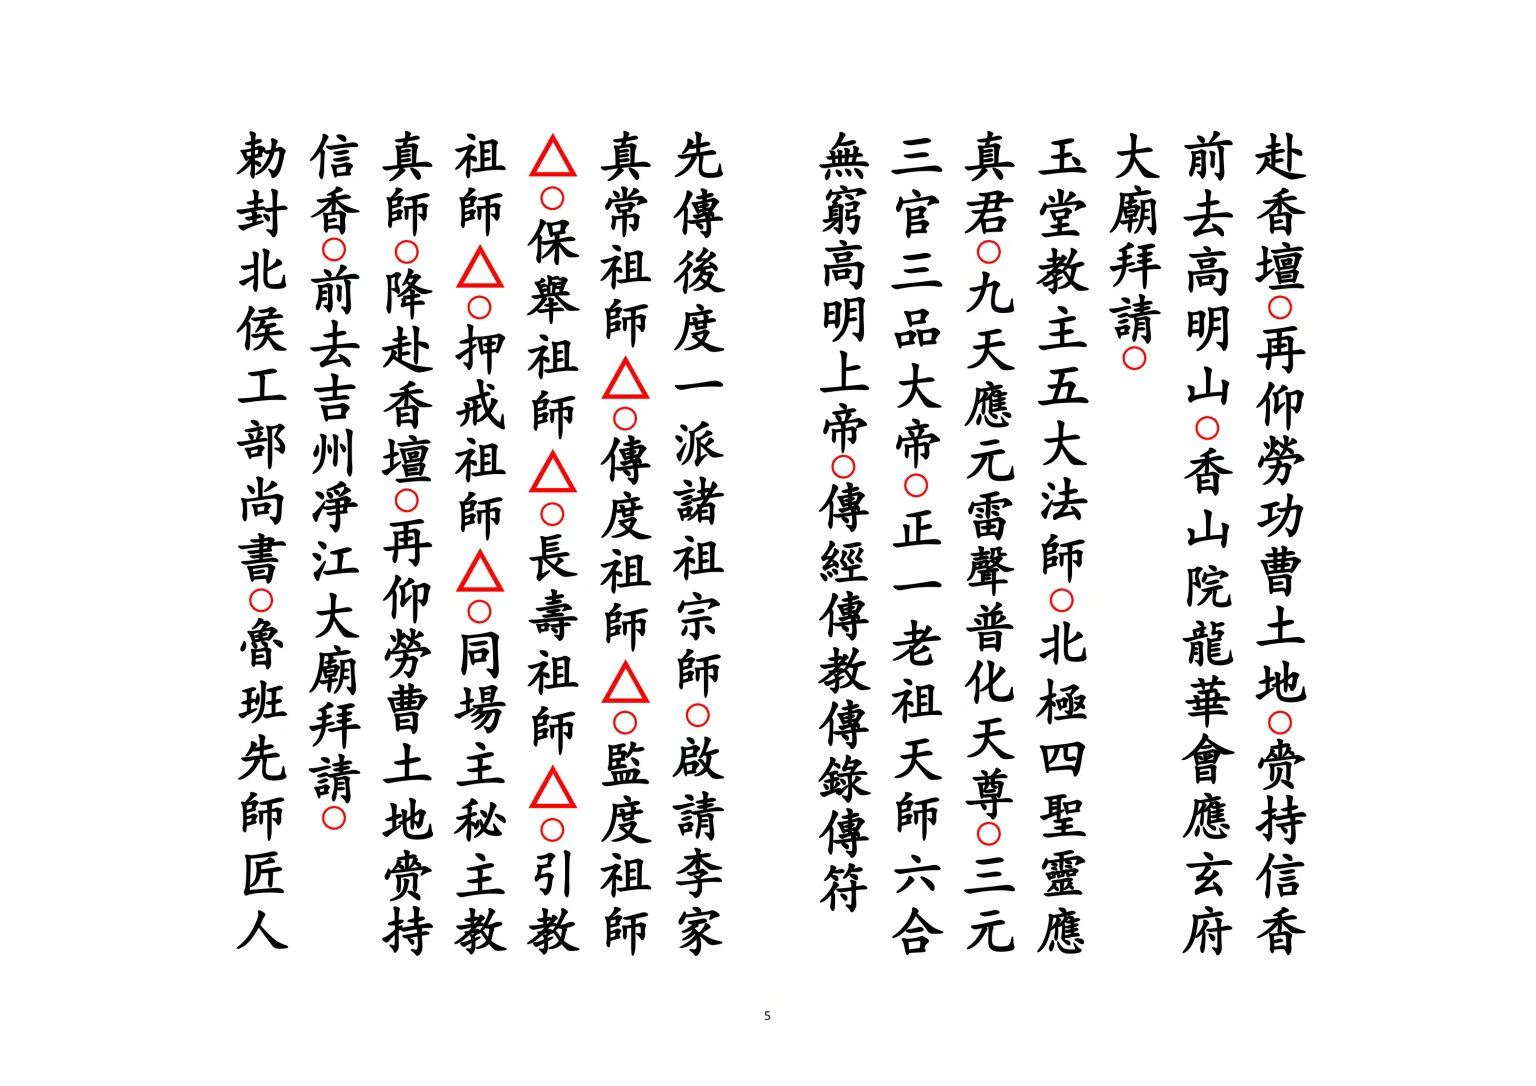 赴香壇○再仰勞功曹土地○赍持信香
前去高明山○香山院龍華會應玄府
大廟拜請○
玉堂教主五大法師○北極四聖靈應
真君○九天應元雷聲普化天尊○三元
三官三品大帝○正一老祖天師六合
無窮高明上帝○傳經傳教傳錄傳符
先傳後度一派諸祖宗師○啟請李家
真常祖師△○傳度祖師△○監度祖師
△○保舉祖師△○長壽祖師△○引教
祖師△○押戒祖師△○同場主秘主教
真師○降赴香壇○再仰勞曹土地赍持
信香○前去吉州凈江大廟拜請○
勅封北侯工部尚書○魯班先師匠人
5